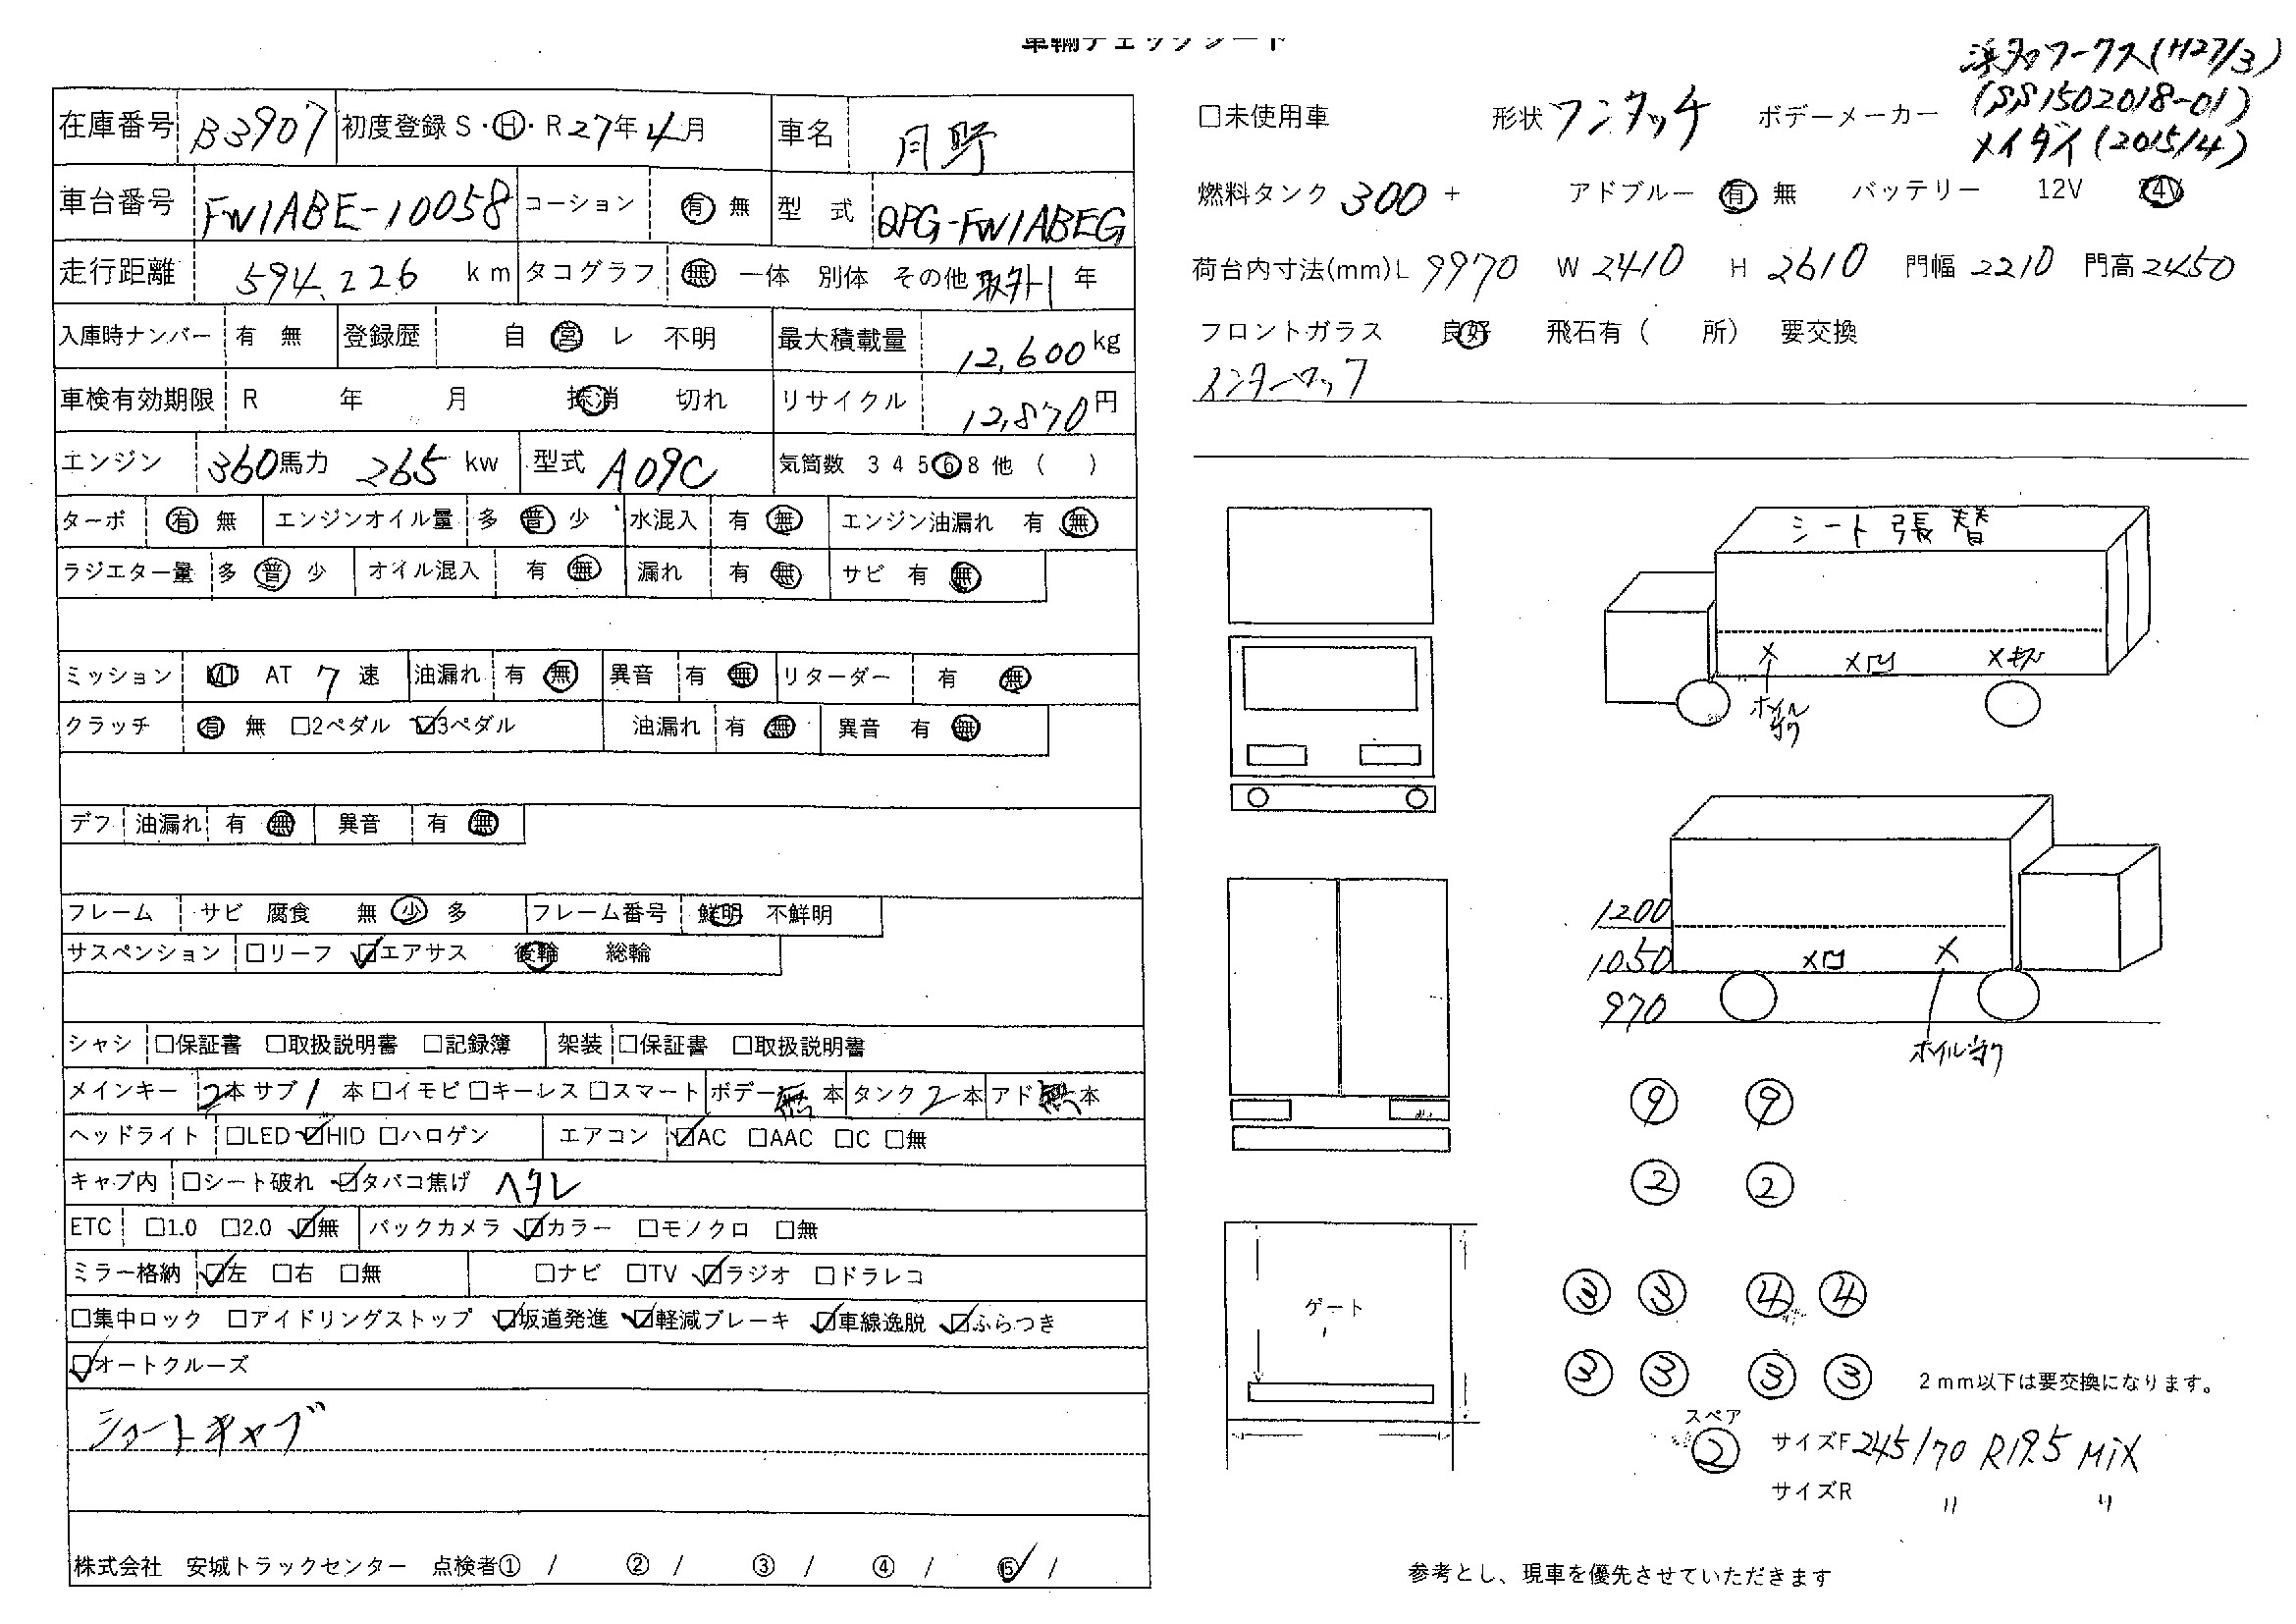 車輌チェックシート
在庫番号 B3907 初度登録 S・Ⓗ・R 27年 4月 車名 日野
車台番号 FW1ABE-10058 コーション 有 無 型式 QPG-FW1ABEG
走行距離 594,226 km タコグラフ 無 一体 別体 その他 取外し 年
入庫時ナンバー 有 無 登録歴 自 営 レ 不明 最大積載量 12,600 kg
車検有効期限 R 年 月 抹消 切れ リサイクル 12,870 円
エンジン 360馬力 265 kw 型式 A09C 気筒数 3 4 5 6 8 他 ( )
ターボ 有 無 エンジンオイル量 多 普 少 水混入 有 無 エンジン油漏れ 有 無
ラジエター量 多 普 少 オイル混入 有 無 漏れ 有 無 サビ 有 無
ミッション MT AT 7 速 油漏れ 有 無 異音 有 無 リターダー 有 無
クラッチ 有 無 □2ペダル ☑3ペダル 油漏れ 有 無 異音 有 無
デフ 油漏れ 有 無 異音 有 無
フレーム サビ 腐食 無 少 多 フレーム番号 鮮明 不鮮明
サスペンション □リーフ ☑エアサス 後輪 総輪
シャシ □保証書 □取扱説明書 □記録簿 架装 □保証書 □取扱説明書
メインキー 2本 サブ 1 本 □イモビ □キーレス □スマート ボデー 無 本 タンク 2 本 アド 無 本
ヘッドライト □LED ☑HID □ハロゲン エアコン ☑AC □AAC □C □無
キャブ内 □シート破れ ☑タバコ焦げ ヘタレ
ETC □1.0 □2.0 ☑無 バックカメラ ☑カラー □モノクロ □無
ミラー格納 ☑左 □右 □無 □ナビ □TV ☑ラジオ □ドラレコ
□集中ロック □アイドリングストップ ☑坂道発進 ☑軽減ブレーキ ☑車線逸脱 ☑ふらつき
☑オートクルーズ
ショートキャブ
株式会社 安城トラックセンター 点検者① / ② / ③ / ④ / ⑤ /
浜名ワークス(H27/3)
(SS1502018-01)
メイダイ(2015/4)
□未使用車 形状 ワンタッチ ボデーメーカー
燃料タンク 300 + アドブルー 有 無 バッテリー 12V 24V
荷台内寸法(mm) L 9970 W 2410 H 2610 門幅 2210 門高 2450
フロントガラス 良好 飛石有 ( 所) 要交換
インターロック
シート張替
× ×凹 ×キズ
ホイル守り
1200
1050
970
×凹 ×
ホイル守り
⑨ ⑨
② ②
③ ③ ④ ④
③ ③ ③ ③
2mm以下は要交換になります。
スペア
②
サイズF 245/70 R19.5 MIX
サイズR 〃 〃
ゲート
参考とし、現車を優先させていただきます